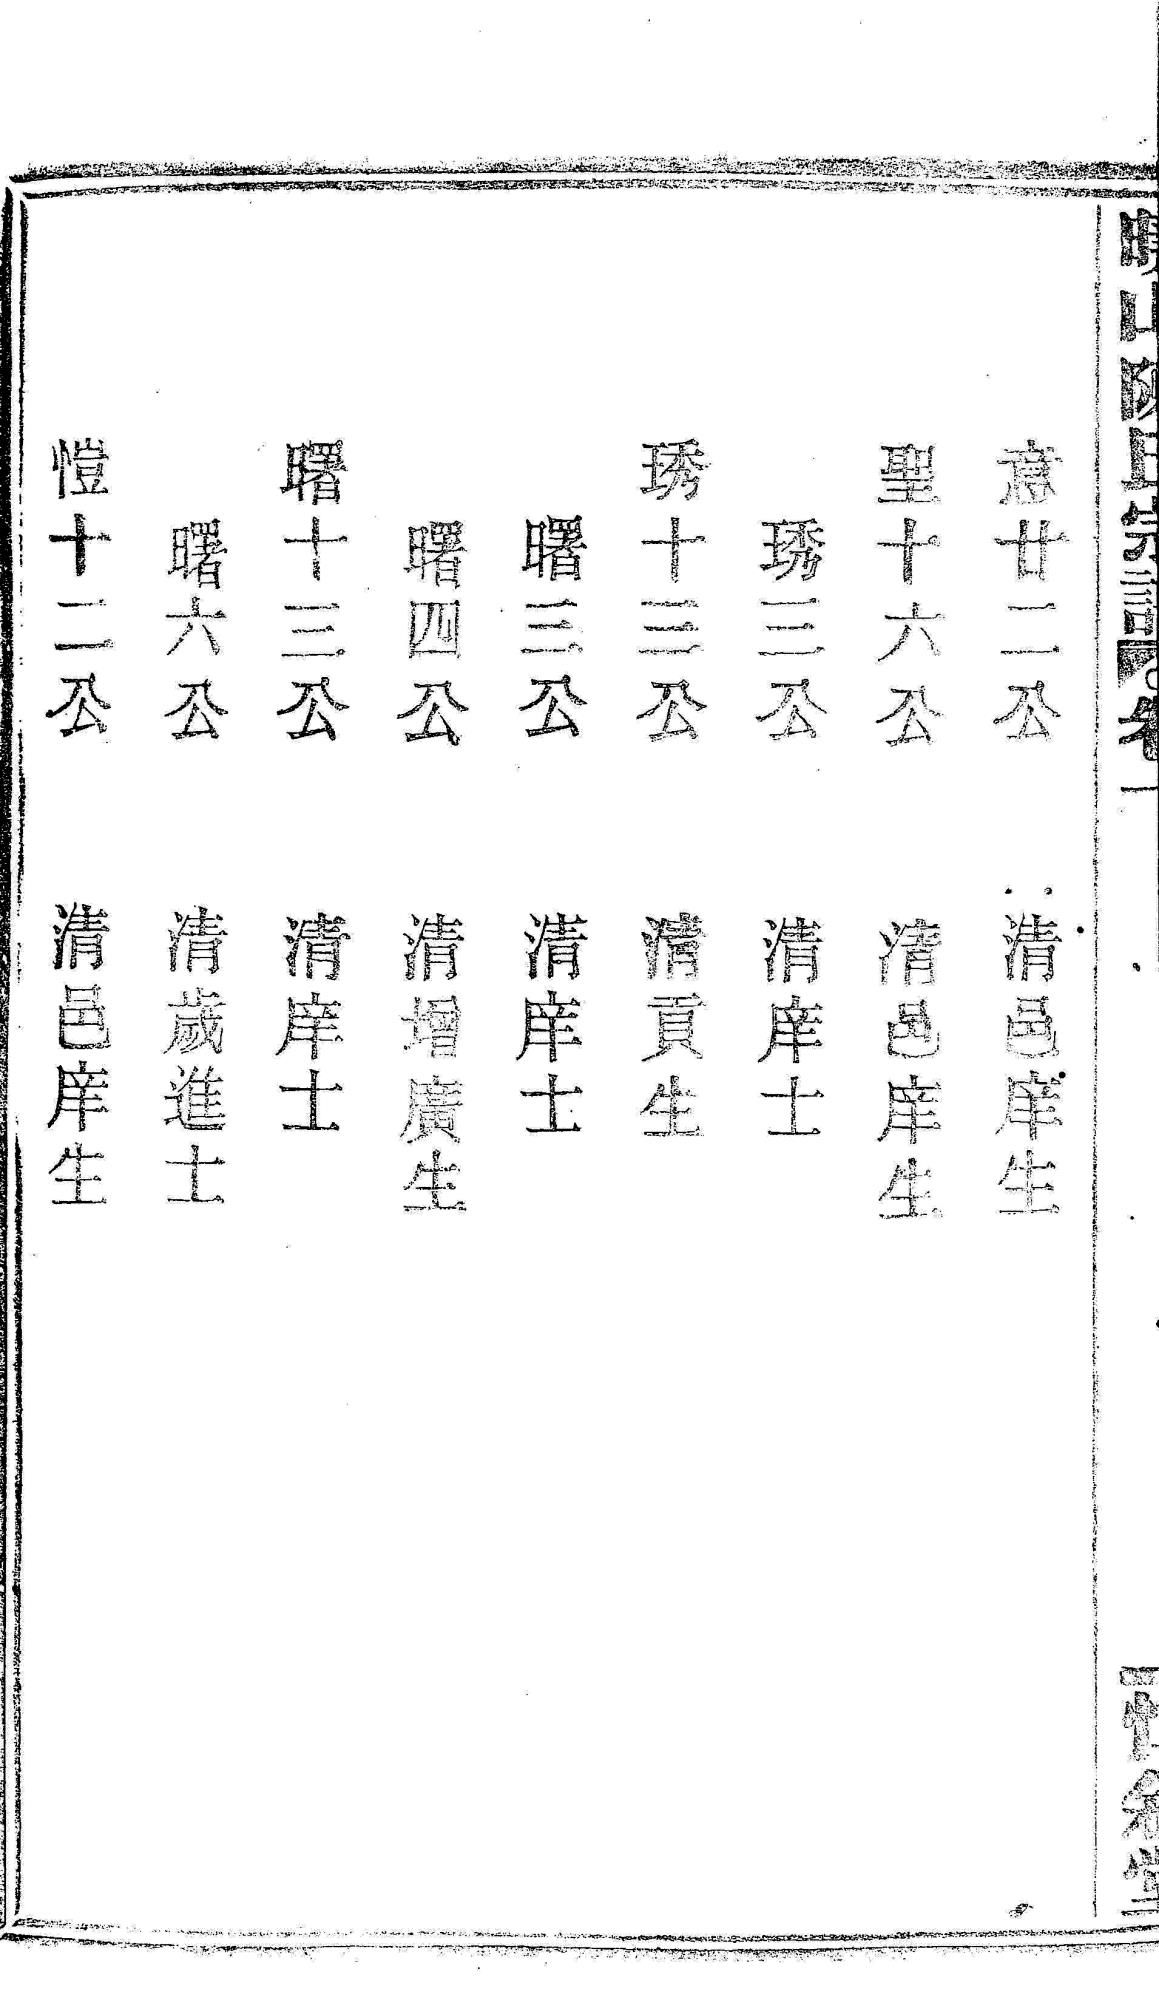 意廿二公　清邑庠生
聖十六公　清邑庠生
琇三公　清庠士
琇十三公　清貢生
曙三公　清庠士
曙四公　清增廣生
曙十三公　清庠士
曙六公　清歲進士
愷十二公　清邑庠生